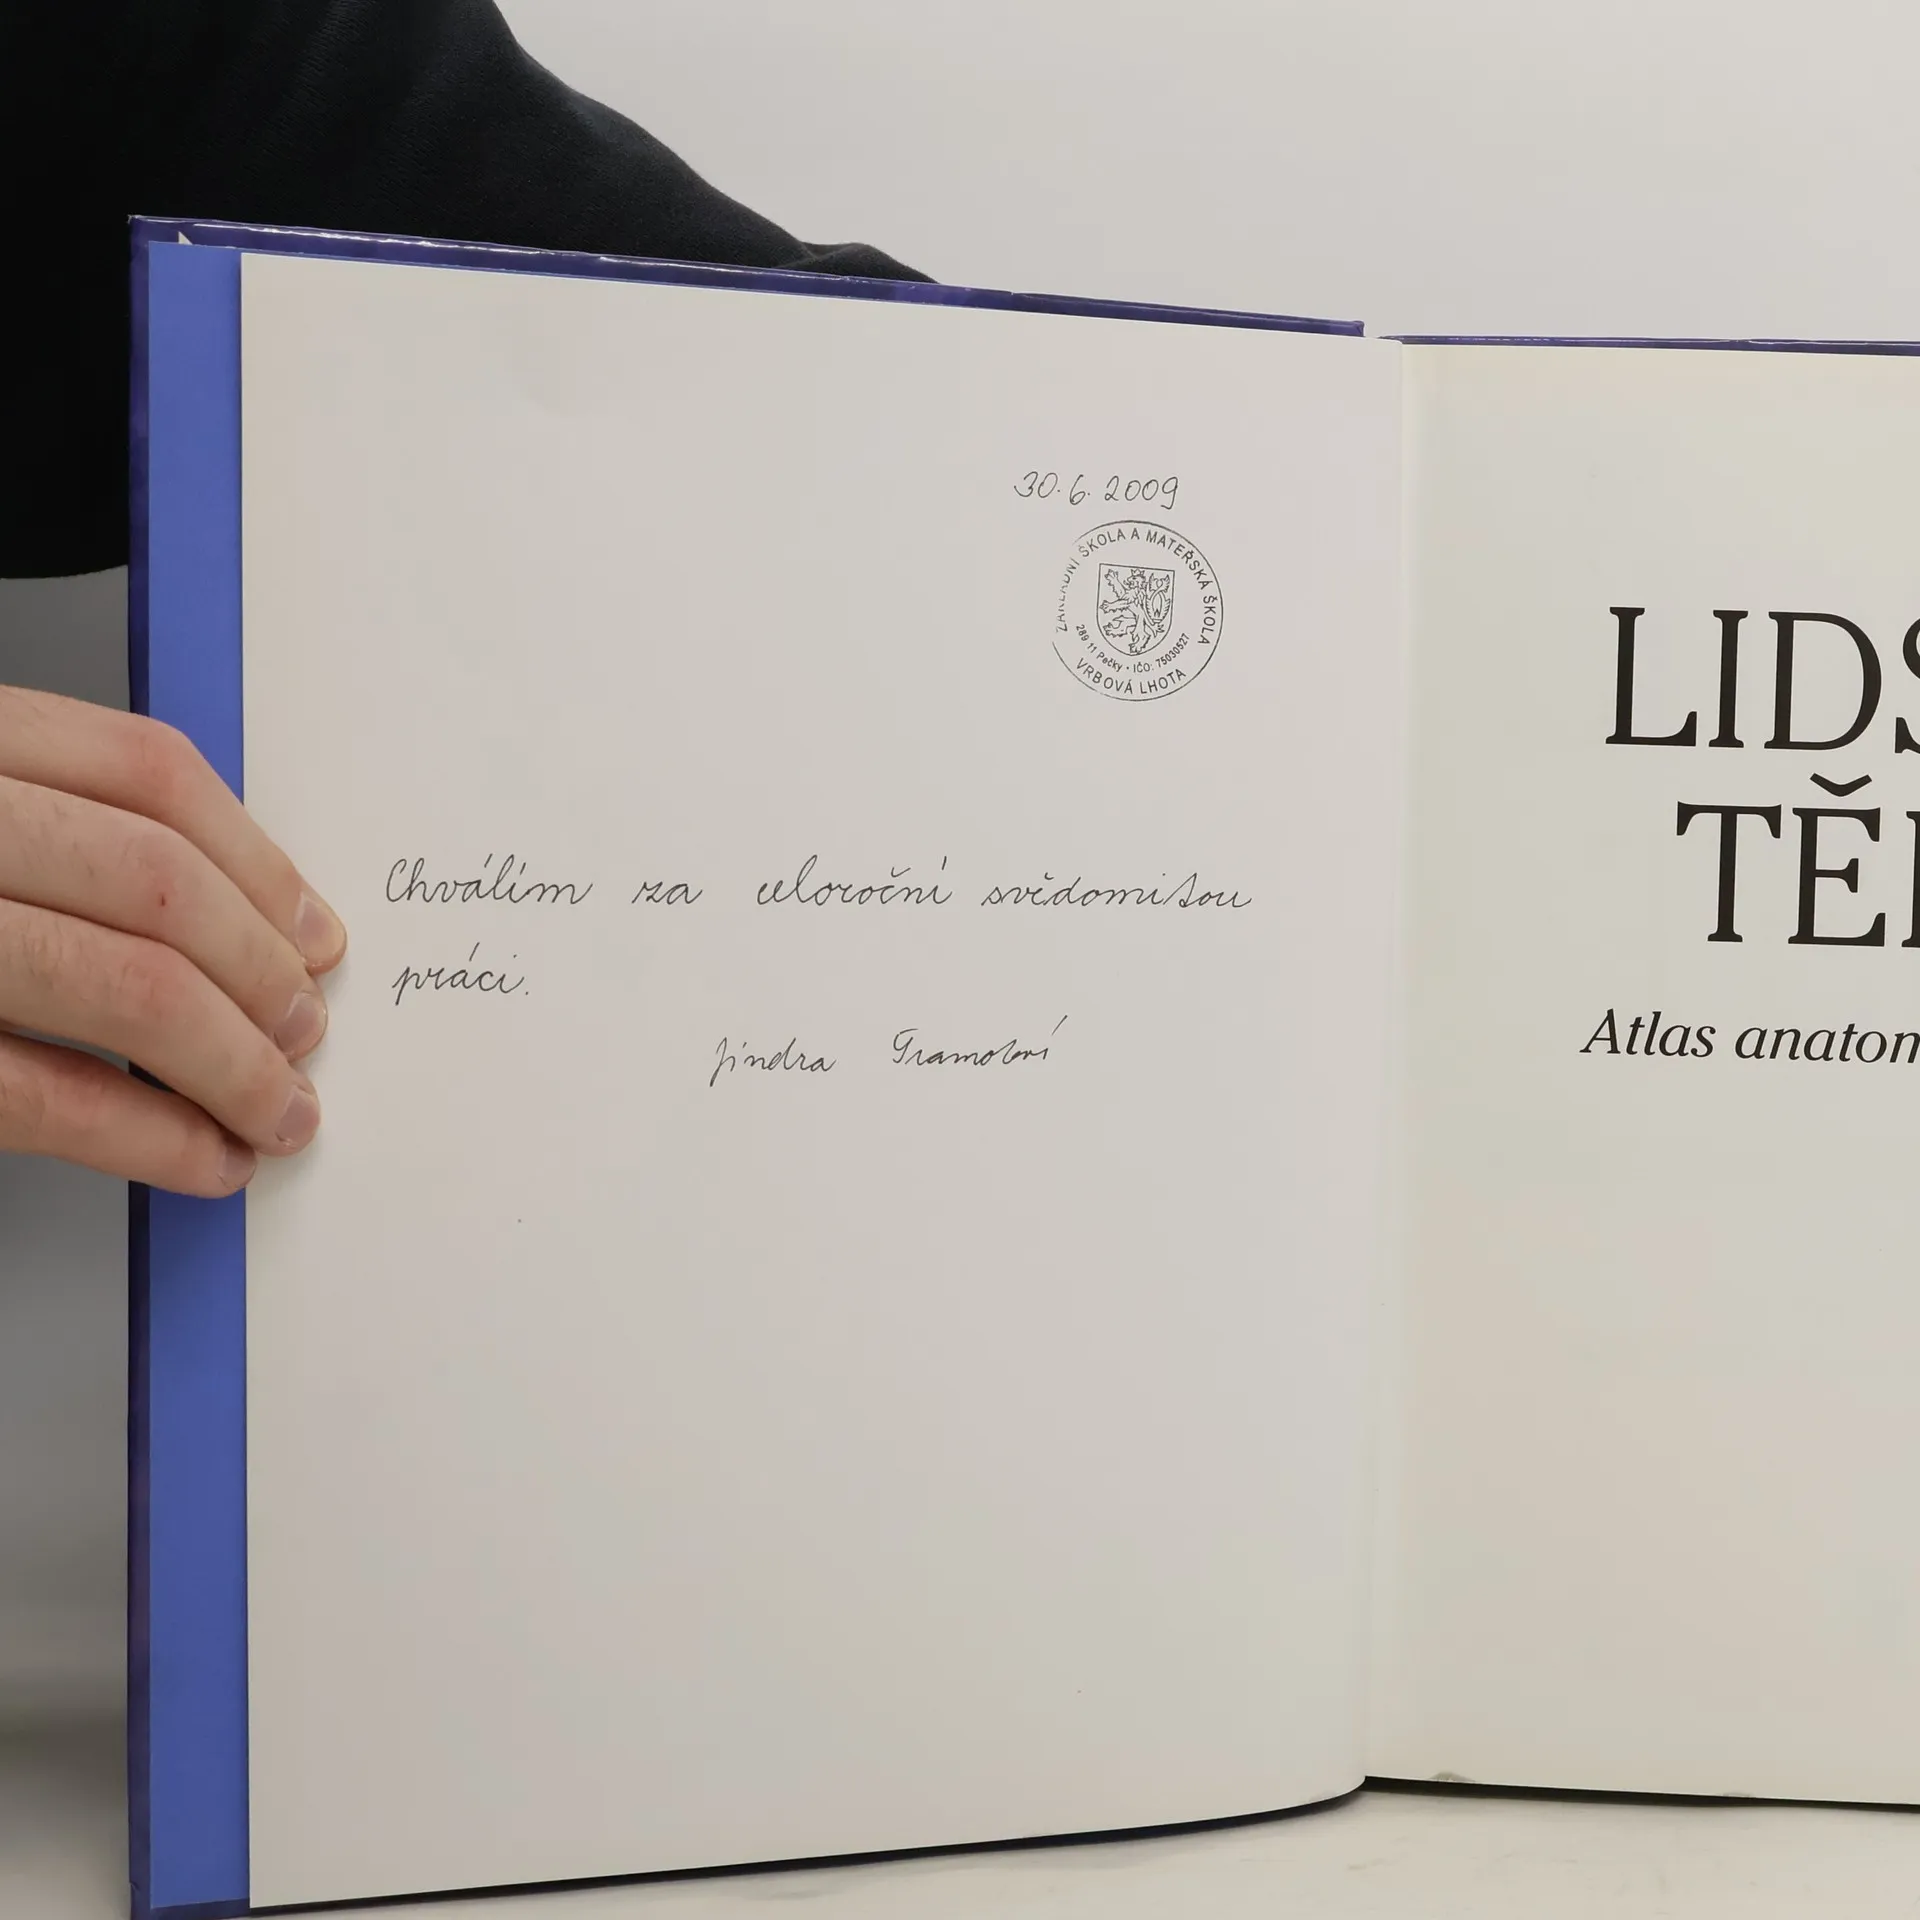 30.6.2009
ZÁKLADNÍ ŠKOLA A MATEŘSKÁ ŠKOLA
289 11 Pečky • IČO: 75030527
VRBOVÁ LHOTA
Chválím za celoroční svědomitou
práci.
Jindra
LIDS
TĚL
Atlas anatom